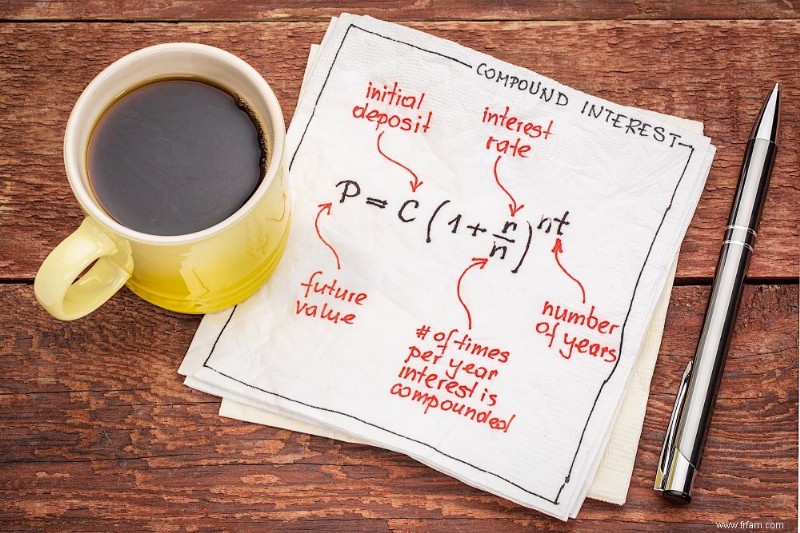 COMPOUND INTEREST
initial
deposit
interest
rate
P = C (1 + r/n)^nt
future
value
# of times
per year
interest is
compounded
number
of years
www.frfam.com